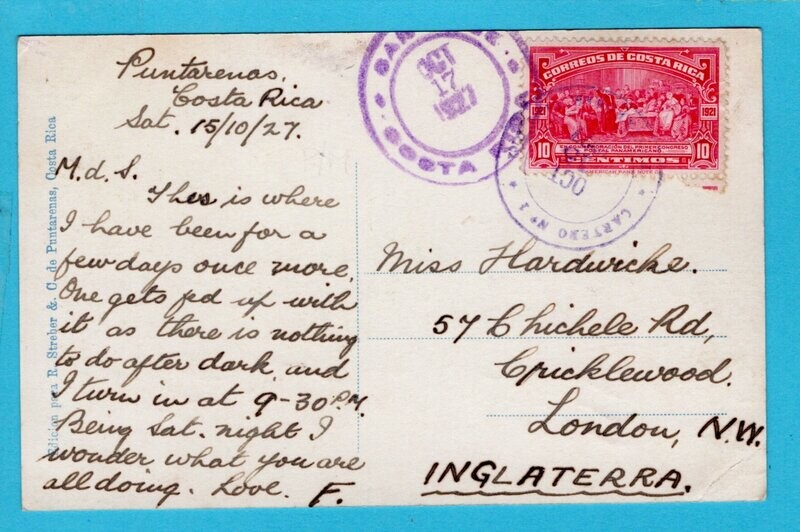 Puntarenas,
Costa Rica
Sat. 15/10/27.
M.d.S.
This is where
I have been for a
few days once more.
One gets fed up with
it as there is nothing
to do after dark and
I turn in at 9-30 P.M.
Being Sat. night I
wonder what you are
all doing. Love. F.
Edicion para R. Streber & C. de Puntarenas, Costa Rica
OCT
17
1927
COSTA
CORREOS DE COSTA RICA
1821 1921
10 CENTIMOS 10
CARTERO Nº 1
OCT
Miss Hardwicke.
57 Chichele Rd,
Cricklewood.
London, N.W.
INGLATERRA.